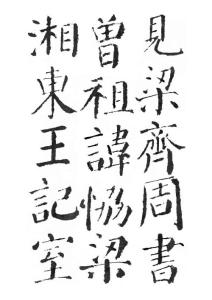 見梁齊周書
曾祖諱恊梁
湘東王記室